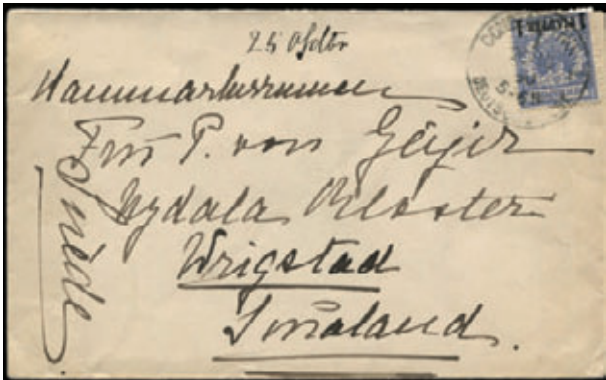 25 Oktbr
Kammarherrinnan
Fru P. von Geijer
Nydala Kloster
Wrigstad
Småland.
Suède.
1 PIASTER 1